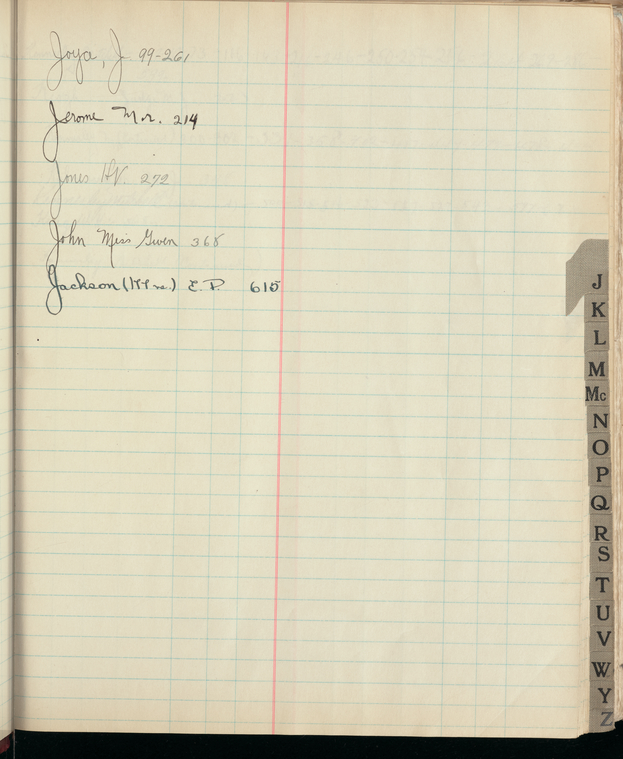 Joya, J. 99-261
Jerome Mr. 214
Jones H.V. 272
John Miss Gwen 365
Jackson (Mrs.) E.P. 615
J
K
L
M
Mc
N
O
P
Q
R
S
T
U
V
W
Y
Z